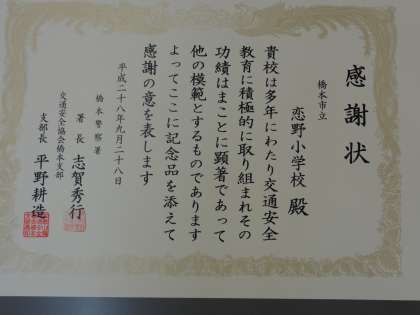 感謝状
橋本市立
恋野小学校 殿
貴校は多年にわたり交通安全
教育に積極的に取り組まれその
功績はまことに顕著であって
他の模範とするものであります
よってここに記念品を添えて
感謝の意を表します
平成二十八年九月二十八日
橋本警察署
署長 志賀秀行
交通安全協会橋本支部
支部長 平野耕造